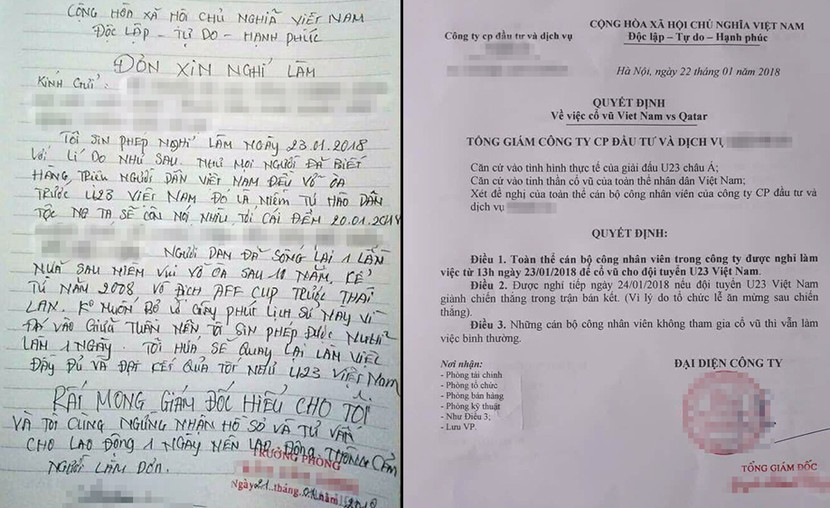 CỘNG HÒA XÃ HỘI CHỦ NGHĨA VIỆT NAM
ĐỘC LẬP - TỰ DO - HẠNH PHÚC
ĐƠN XIN NGHỈ LÀM
KÍNH GỬI:
TÔI SIN PHÉP NGHỈ LÀM NGÀY 23.01.2018
VỚI LÍ DO NHƯ SAU. NHƯ MỌI NGƯỜI ĐÃ BIẾT
HÀNG TRIỆU NGƯỜI DÂN VIỆT NAM ĐỀU VỠ ÒA
TRƯỚC U23 VIỆT NAM ĐÓ LÀ NIỀM TỰ HÀO DÂN
TỘC NG TA SẼ CÒN NÓI NHIỀU TỚI CÁI ĐÊM 20.01.2018
NGƯỜI DÂN ĐÃ SỐNG LẠI 1 LẦN
NỮA SAU NIỀM VUI VỠ ÒA SAU 10 NĂM, KỂ
TỪ NĂM 2008 VÔ ĐỊCH AFF CUP TRƯỚC THÁI
LAN. Ko MUỐN BỎ LỠ GIÂY PHÚT LỊCH SỬ NÀY VÌ
ĐÁ VÀO GIỮA TUẦN NÊN TÔI SIN PHÉP ĐƯỢC NGHỈ
LÀM 1 NGÀY. TÔI HỨA SẼ QUAY LẠI LÀM VIỆC
ĐẦY ĐỦ VÀ ĐẠT KẾT QUẢ TỐT NẾU U23 VIỆT NAM
RẤT MONG GIÁM ĐỐC HIỂU CHO TÔI
VÀ TÔI CŨNG NGỪNG NHẬN HỒ SƠ VÀ TƯ VẤN
CHO LAO ĐỘNG 1 NGÀY NÊN LAO ĐỘNG THÔNG CẢM
NGƯỜI LÀM ĐƠN.
TRƯỞNG PHÒNG
Ngày 21 tháng 01 năm 2018
Công ty cp đầu tư và dịch vụ
CỘNG HÒA XÃ HỘI CHỦ NGHĨA VIỆT NAM
Độc lập – Tự do – Hạnh phúc
Hà Nội, ngày 22 tháng 01 năm 2018
QUYẾT ĐỊNH
Về việc cổ vũ Viet Nam vs Qatar
TỔNG GIÁM CÔNG TY CP ĐẦU TƯ VÀ DỊCH VỤ
Căn cứ vào tình hình thực tế của giải đấu U23 châu Á;
Căn cứ vào tinh thần cổ vũ của toàn thể nhân dân Việt Nam;
Xét đề nghị của toàn thể cán bộ công nhân viên của công ty CP đầu tư và
dịch vụ
QUYẾT ĐỊNH:
Điều 1. Toàn thể cán bộ công nhân viên trong công ty được nghỉ làm
việc từ 13h ngày 23/01/2018 để cổ vũ cho đội tuyển U23 Việt Nam.
Điều 2. Được nghỉ tiếp ngày 24/01/2018 nếu đội tuyển U23 Việt Nam
giành chiến thắng trong trận bán kết. (Vì lý do tổ chức lễ ăn mừng sau chiến
thắng).
Điều 3. Những cán bộ công nhân viên không tham gia cổ vũ thì vẫn làm
việc bình thường.
Nơi nhận:
- Phòng tài chính
- Phòng tổ chức
- Phòng bán hàng
- Phòng kỹ thuật
- Như Điều 3;
- Lưu VP.
ĐẠI DIỆN CÔNG TY
TỔNG GIÁM ĐỐC